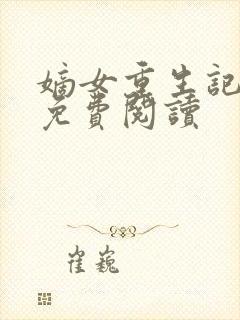 嫡女重生記
免費閱讀
崔巍